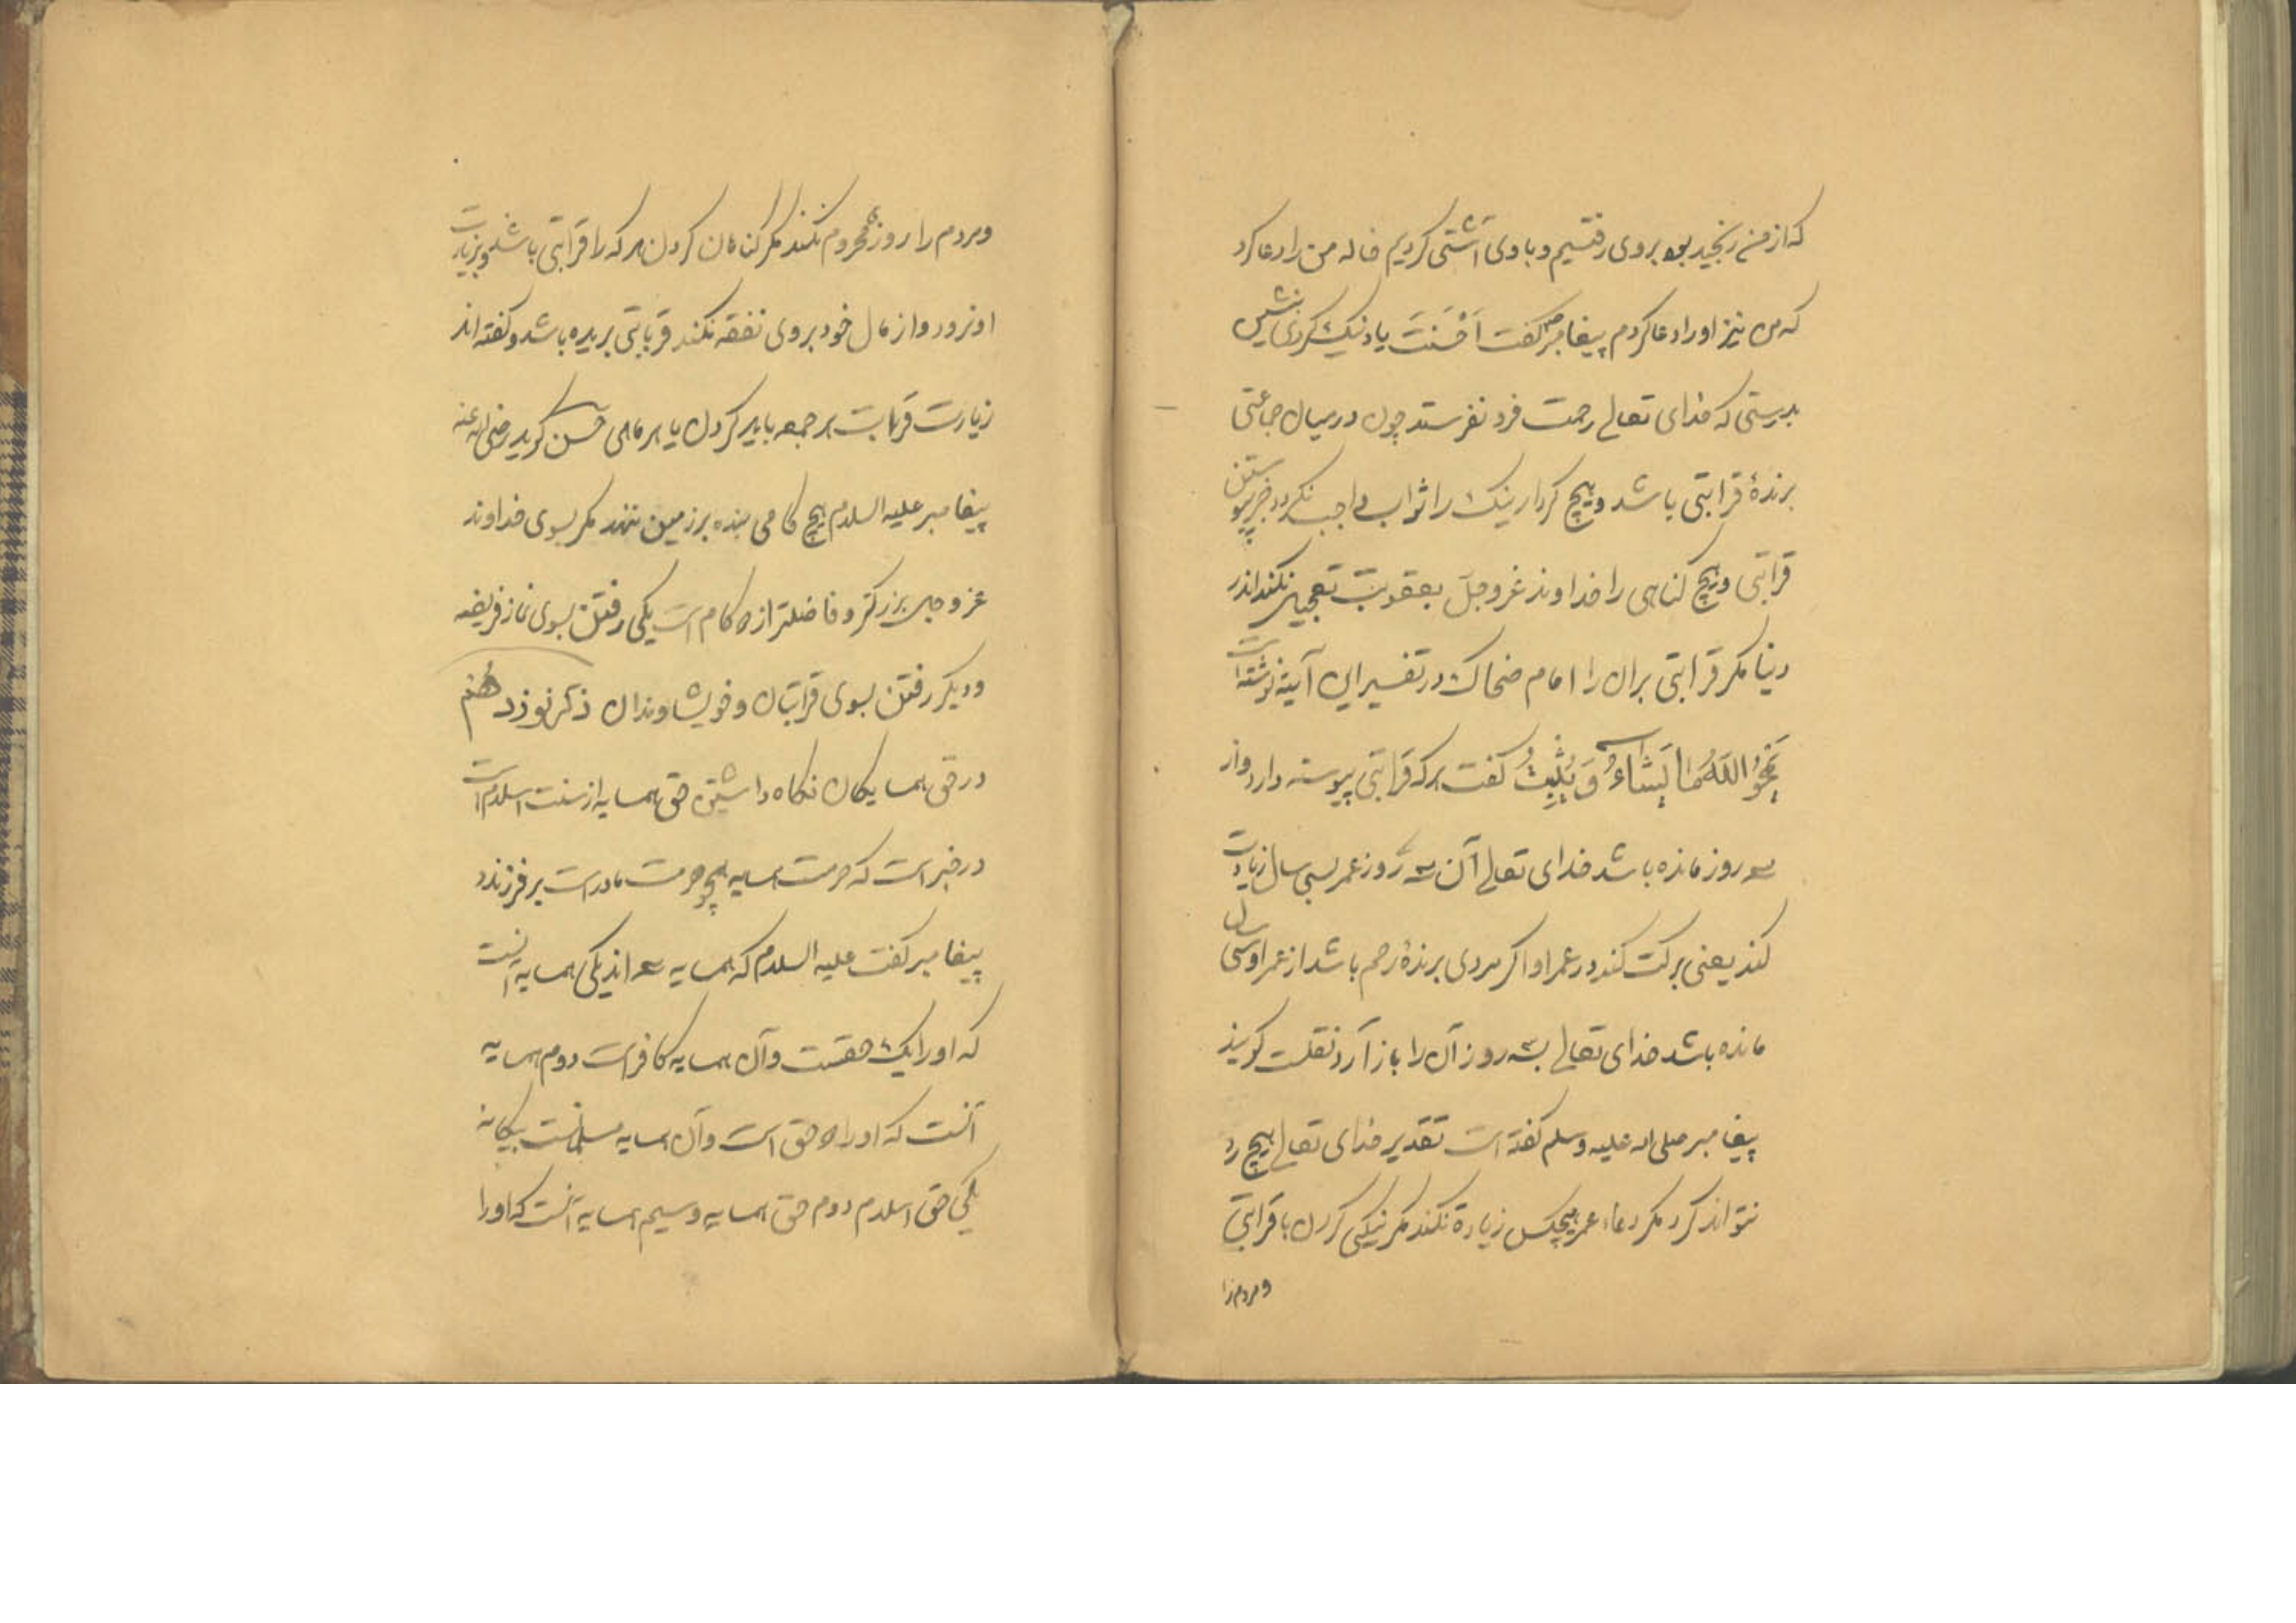 که از من رنجید بود بروی رفتیم و با وی آشتی کردیم خاله من را دعا کرد
که من نیز او را دعا کردم پیغامبر گفت اَحْسَنتَ یا نیک کردی بنشین
بدرستی که خدای تعالی رحمت فرو نفرستد چون در میان جماعتی
برندهٔ قرابتی باشد و هیچ کردار نیک را ثواب واجب نکردد جز پیوستن
قرابتی و هیچ کناهی را خداوند عزوجل بعقوبت تعجیل نکند اندر
دنیا مکر قرابتی بران را امام ضحاک در تفسیر این آیة نوشته است
یَمْحُوُ اللّهُ مَا یَشَاءُ وَ یُثْبِتُ کفت هر که قرابتی پیوسته دارد و از
سه روز مانده باشد خدای تعالی آن سه روز عمر بسی سال زیادت
کند یعنی برکت کند در عمر او اکر مردی برندهٔ رحم باشد از عمر او سی سال
مانده باشد خدای تعالی بسه روز آن را باز آرد نقلست کویند
پیغامبر صلی اله علیه وسلم کفته است تقدیر خدای تعالی هیچ رد
نتواند کرد مکر دعاء عمر هیچکس زیادة نکند مکر نیکی کردن با قرابتی
و مردم را
و مردم را روزی محروم نکند مکر کناهان کردن هر که را قرابتی باشد و بزیارت
او نرود و از مال خود بروی نفقه نکند قرباتی بریده باشد و کفته اند
زیارت قربات هر جمعه باید کردن یا هر ماهی حسن کوید رضی اله عنه
پیغامبر علیه السلام هیچ کامی بنده بر زمین ننهد مکر بسوی خداوند
عز و جل بزرکتر و فاضلتر از ۲ کام است یکی رفتن بسوی نماز فریضه
و دیکر رفتن بسوی قرابتان و خویشاوندان ذکر نوزدهم
در حق همسایکان نکاه داشتن حق همسایه از سنت اسلام است
در خبر است که حرمت همسایه همچو حرمت مادر است بر فرزند
پیغامبر کفت علیه السلام که همسایه سه اند یکی همسایه آنست
که او را یک حقست و آن همسایه کافر است دوم همسایه
آنست که او را ۲ حق است و آن همسایه مسلمانست بیکانه
یکی حق اسلام دوم حق همسایه و سیم همسایه آنست که او را